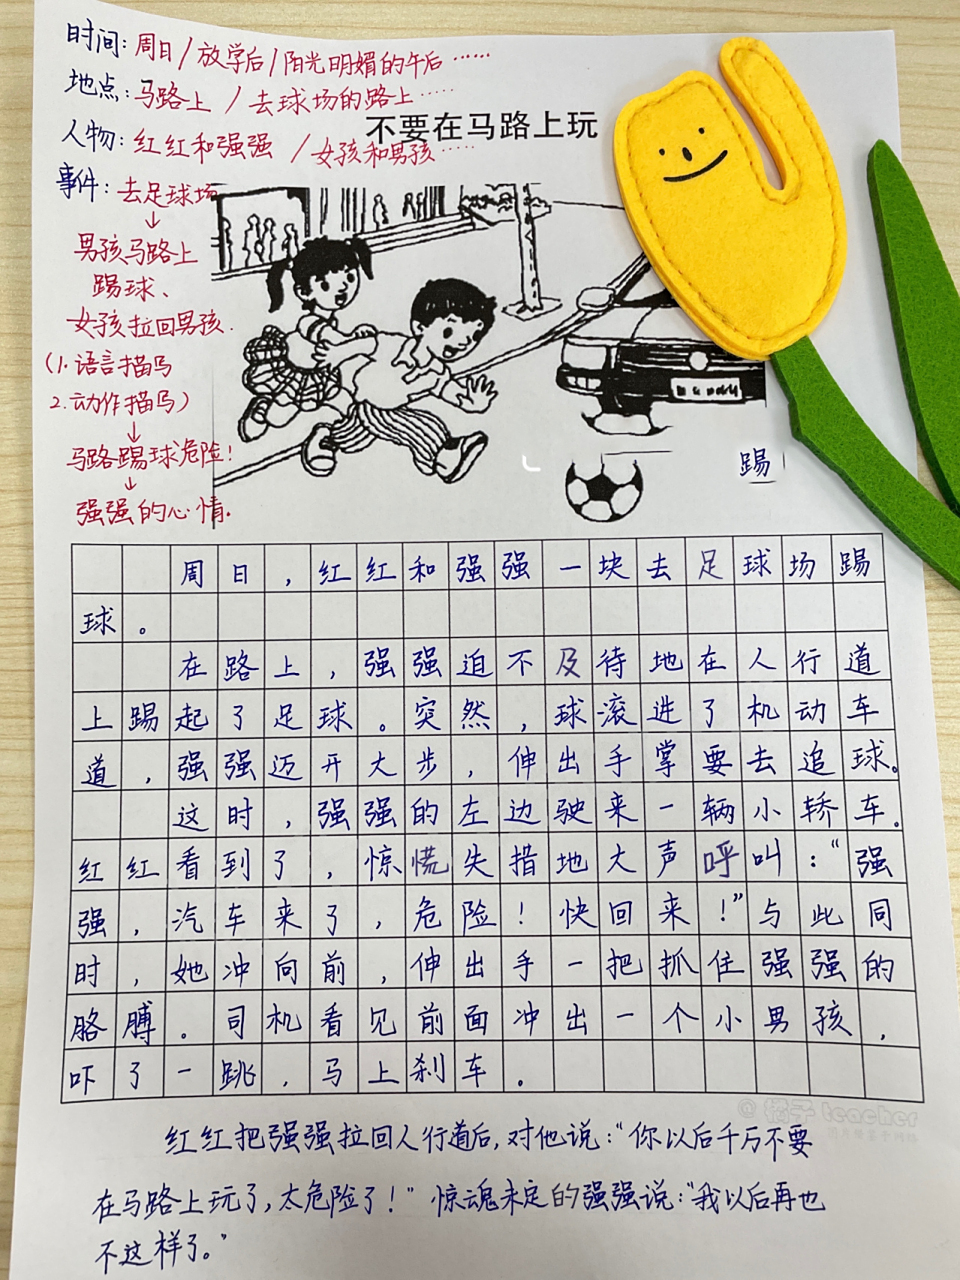 时间：周日/放学后/阳光明媚的午后……
地点：马路上 / 去球场的路上……
不要在马路上玩
人物：红红和强强 / 女孩和男孩……
事件：去足球场
↓
男孩马路上
踢球、
女孩拉回男孩.
(1.语言描写
2.动作描写)
↓
马路踢球危险!
↓
强强的心情.
踢
周日，红红和强强一块去足球场踢
球。
在路上，强强迫不及待地在人行道
上踢起了足球。突然，球滚进了机动车
道，强强迈开大步，伸出手掌要去追球。
这时，强强的左边驶来一辆小轿车。
红红看到了，惊慌失措地大声呼叫：“强
强，汽车来了，危险！快回来！”与此同
时，她冲向前，伸出手一把抓住强强的
胳膊。司机看见前面冲出一个小男孩，
吓了一跳，马上刹车。
@橘子teacher
红红把强强拉回人行道后，对他说：“你以后千万不要
在马路上玩了，太危险了！”惊魂未定的强强说：“我以后再也
不这样了。”